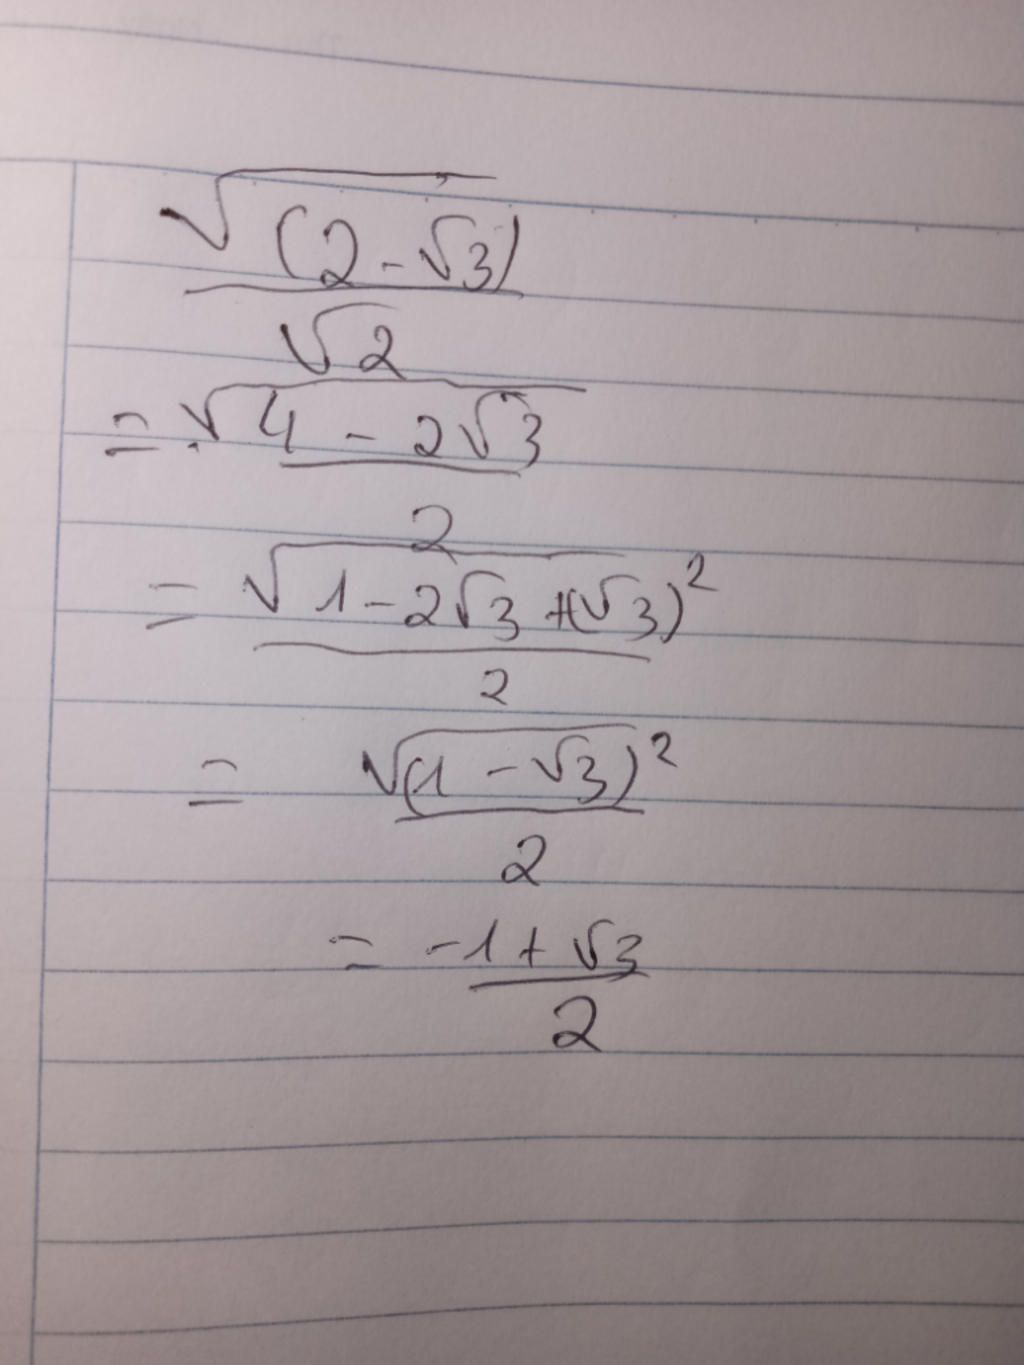 √(2-√3)
√2
= √4 - 2√3
2
= √1-2√3 +(√3)²
2
= √(1 - √3)²
2
= -1+√3
2